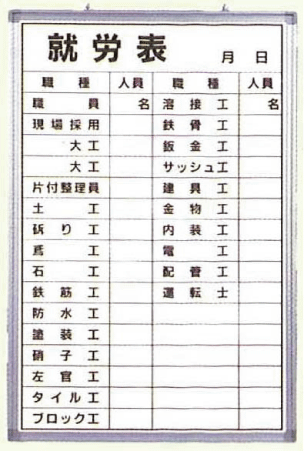 就労表 月 日
職種 人員 職種 人員
職員 名 溶接工 名
現場採用 鉄骨工
大工 鈑金工
大工 サッシュ工
片付整理員 建具工
土工 金物工
斫り工 内装工
鳶工 電工
石工 配管工
鉄筋工 運転士
防水工
塗装工
硝子工
左官工
タイル工
ブロック工